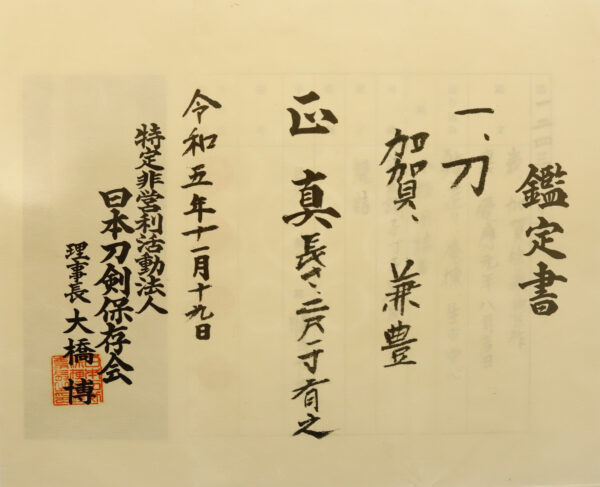 鑑定書
一、刀
加賀、兼豊
正真 長さ、二尺一寸有之
令和五年十一月十九日
特定非営利活動法人
日本刀剣保存会
理事長 大橋博